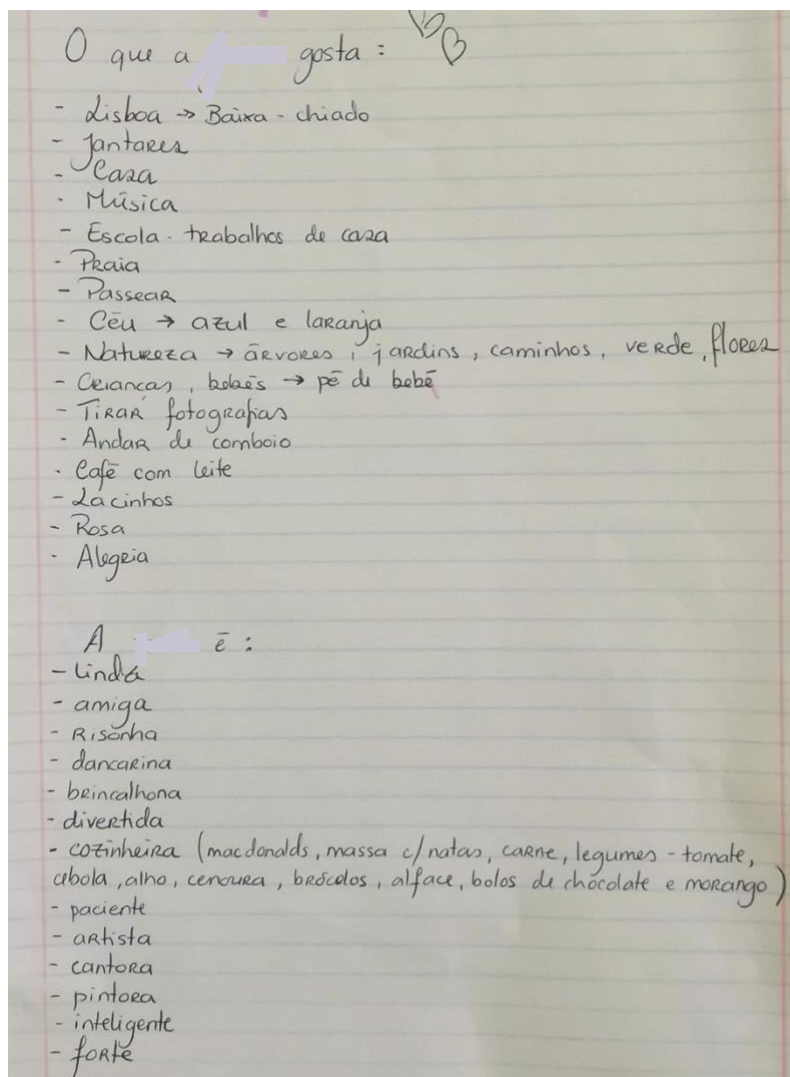 O que a gosta:
- Lisboa → Baixa - chiado
- Jantares
- Casa
- Música
- Escola - trabalhos de casa
- Praia
- Passear
- Céu → azul e laranja
- Natureza → árvores, jardins, caminhos, verde, flores
- Crianças, bebés → pé de bebé
- Tirar fotografias
- Andar de comboio
- Café com leite
- Lacinhos
- Rosa
- Alegria
A é:
- linda
- amiga
- Risonha
- dancarina
- brincalhona
- divertida
- cozinheira (macdonalds, massa c/ natas, carne, legumes - tomate,
cebola, alho, cenoura, brócolos, alface, bolos de chocolate e morango)
- paciente
- artista
- cantora
- pintora
- inteligente
- forte